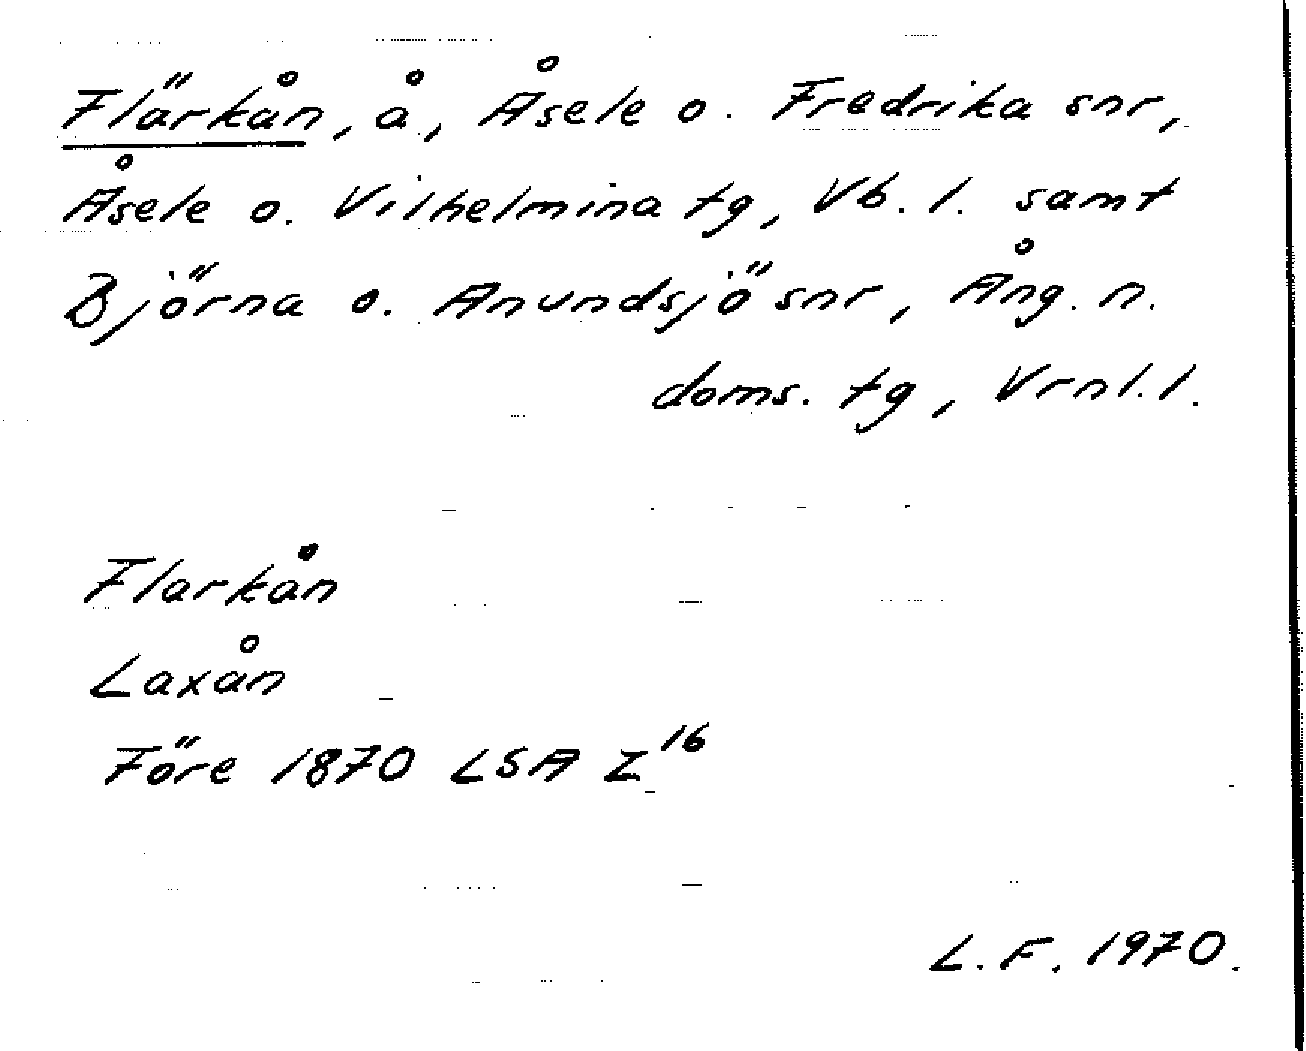 Flärkån, å, Åsele o. Fredrika snr,
Åsele o. Vilhelmina tg, Vb. l. samt
Björna o. Anundsjö snr, Ång. n.
doms. tg, Vrnl. l.
Flarkån
Laxån
Före 1870 LSA Z16
L. F. 1970.